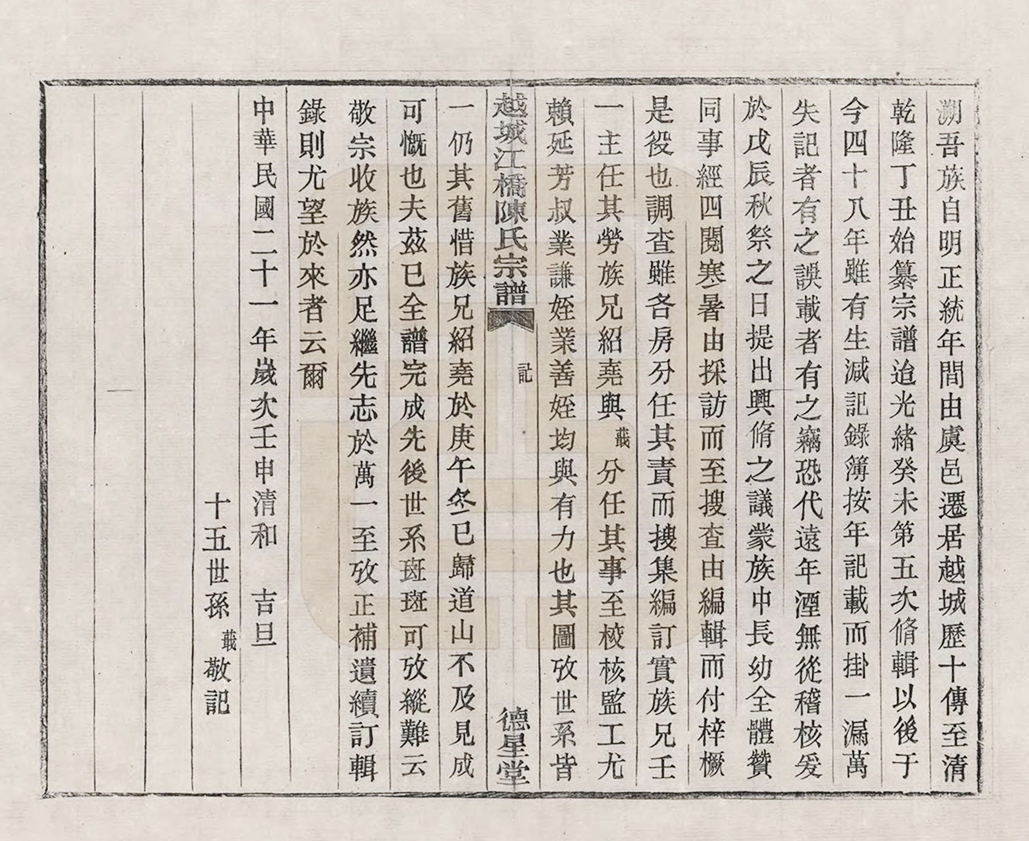 溯吾族自明正統年間由虞邑遷居越城歷十傳至清
乾隆丁丑始纂宗譜迨光緒癸未第五次脩輯以後于
今四十八年雖有生減記錄簿按年記載而掛一漏萬
失記者有之誤載者有之竊恐代遠年湮無從稽核爰
於戊辰秋祭之日提出興脩之議蒙族中長幼全體贊
同事經四閱寒暑由採訪而至搜查由編輯而付梓橛
是役也調查雖各房分任其責而搜集編訂實族兄壬
一主任其勞族兄紹堯與 分任其事至校核監工尤
賴延芳叔業謙姪業善姪均與有力也其圖攷世系皆
越城江橋陳氏宗譜 記 德星堂
一仍其舊惜族兄紹堯於庚午冬已歸道山不及見成
可慨也夫茲已全譜完成先後世系斑斑可攷縱難云
敬宗收族然亦足繼先志於萬一至攷正補遺續訂輯
錄則尤望於來者云爾
中華民國二十一年歲次壬申清和 吉旦
十五世孫 敬記